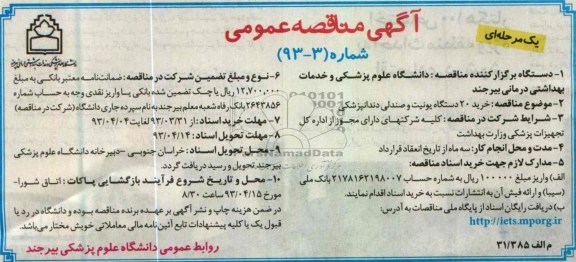 آگهی مناقصه عمومی
یک مرحله‌ای
شماره (۳-۹۳)
۱- دستگاه برگزار کننده مناقصه: دانشگاه علوم پزشکی و خدمات
بهداشتی درمانی بیرجند
۲- موضوع مناقصه: خرید ۲۰ دستگاه یونیت و صندلی دندانپزشکی
۳- شرایط شرکت در مناقصه: کلیه شرکتهای دارای مجوز از اداره کل
تجهیزات پزشکی وزارت بهداشت
۴- مدت و محل انجام کار: سه ماه از تاریخ انعقاد قرارداد
۵- مدارک لازم جهت خرید اسناد مناقصه:
الف) واریز مبلغ ۱۰۰۰۰۰ ریال به شماره حساب ۲۱۷۸۱۶۲۱۹۸۰۰۷ بانک ملی
(سیبا) و ارائه فیش آن به انتشارات نسبت به خرید اسناد اقدام نمایند.
ب) دریافت رایگان اسناد از پایگاه ملی مناقصات به آدرس:
http://iets.mporg.ir
م الف ۳۱/۳۸۵
۶- نوع و مبلغ تضمین شرکت در مناقصه: ضمانت‌نامه معتبر بانکی به مبلغ
۱۲,۷۰۰,۰۰۰ ریال یا چک تضمین شده بانکی یا واریز نقدی وجه به حساب شماره
۲۶۴۳۸۵۶ بانک رفاه شعبه معلم بیرجند به نام سپرده جاری دانشگاه (شرکت در مناقصه)
۷- مهلت خرید اسناد: از ۹۳/۰۳/۳۱ لغایت ۹۳/۰۴/۰۴
۸- مهلت تحویل اسناد: ۹۳/۰۴/۱۴
۹- محل تحویل اسناد: خراسان جنوبی – دبیرخانه دانشگاه علوم پزشکی
بیرجند تحویل و رسید دریافت گردد.
۱۰- محل و تاریخ شروع فرآیند بازگشایی پاکات: اتاق شورا-
مورخ ۹۳/۰۴/۱۵ ساعت ۸/۳۰
در ضمن هزینه چاپ و نشر آگهی بر عهده برنده مناقصه بوده و دانشگاه در رد یا
قبول یک یا کلیه پیشنهادات تابع آئین‌نامه مالی معاملاتی خویش مختار می‌باشد.
روابط عمومی دانشگاه علوم پزشکی بیرجند